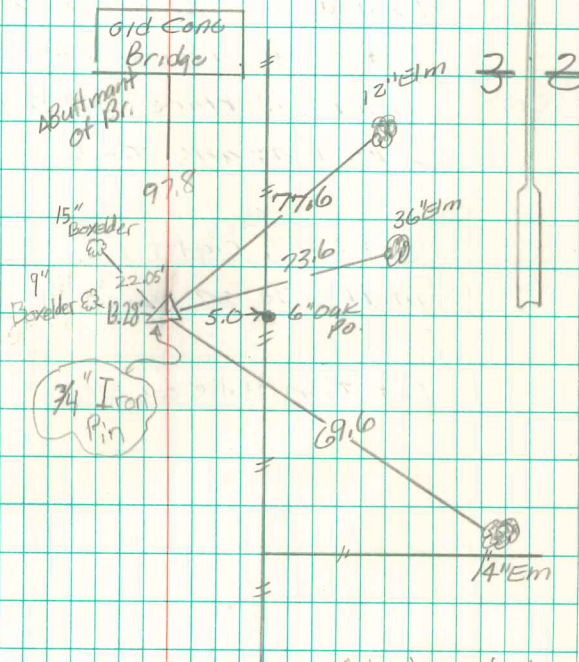 old Conc
Bridge
Abuttmant
of Br.
12" Elm
3 2
97.8
77.6
15"
Boxelder
36" Elm
73.6
22.05'
9"
Boxelder
13.28'
5.0
6" Oak
Po.
3/4" Iron
Pin
69.6
14" Em